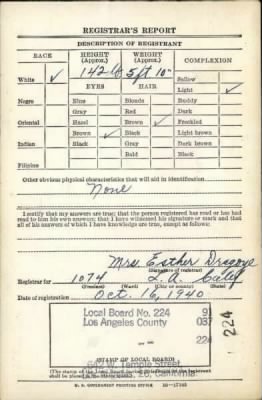 REGISTRAR'S REPORT
DESCRIPTION OF REGISTRANT
RACE HEIGHT (Approx.) WEIGHT (Approx.) COMPLEXION
White ✓ 142 lb 5 ft 10" Sallow
EYES HAIR Light ✓
Negro Blue Blonde Ruddy
Gray Red Dark
Oriental Hazel Brown ✓ Freckled
Brown ✓ Black Light brown
Indian Black Gray Dark brown
Bald Black
Filipino
Other obvious physical characteristics that will aid in identification
None
I certify that my answers are true; that the person registered has read or has had
read to him his own answers; that I have witnessed his signature or mark and that
all of his answers of which I have knowledge are true, except as follows:
Mrs Esther
(Signature of registrar)
Registrar for 1074 L.A. Calif
(Precinct) (Ward) (City or county) (State)
Date of registration Oct. 16, 1940
Local Board No. 224 91
Los Angeles County 037
224
224
(STAMP OF LOCAL BOARD)
(The stamp of the Local Board
shall be
U. S. GOVERNMENT PRINTING OFFICE 16—17105